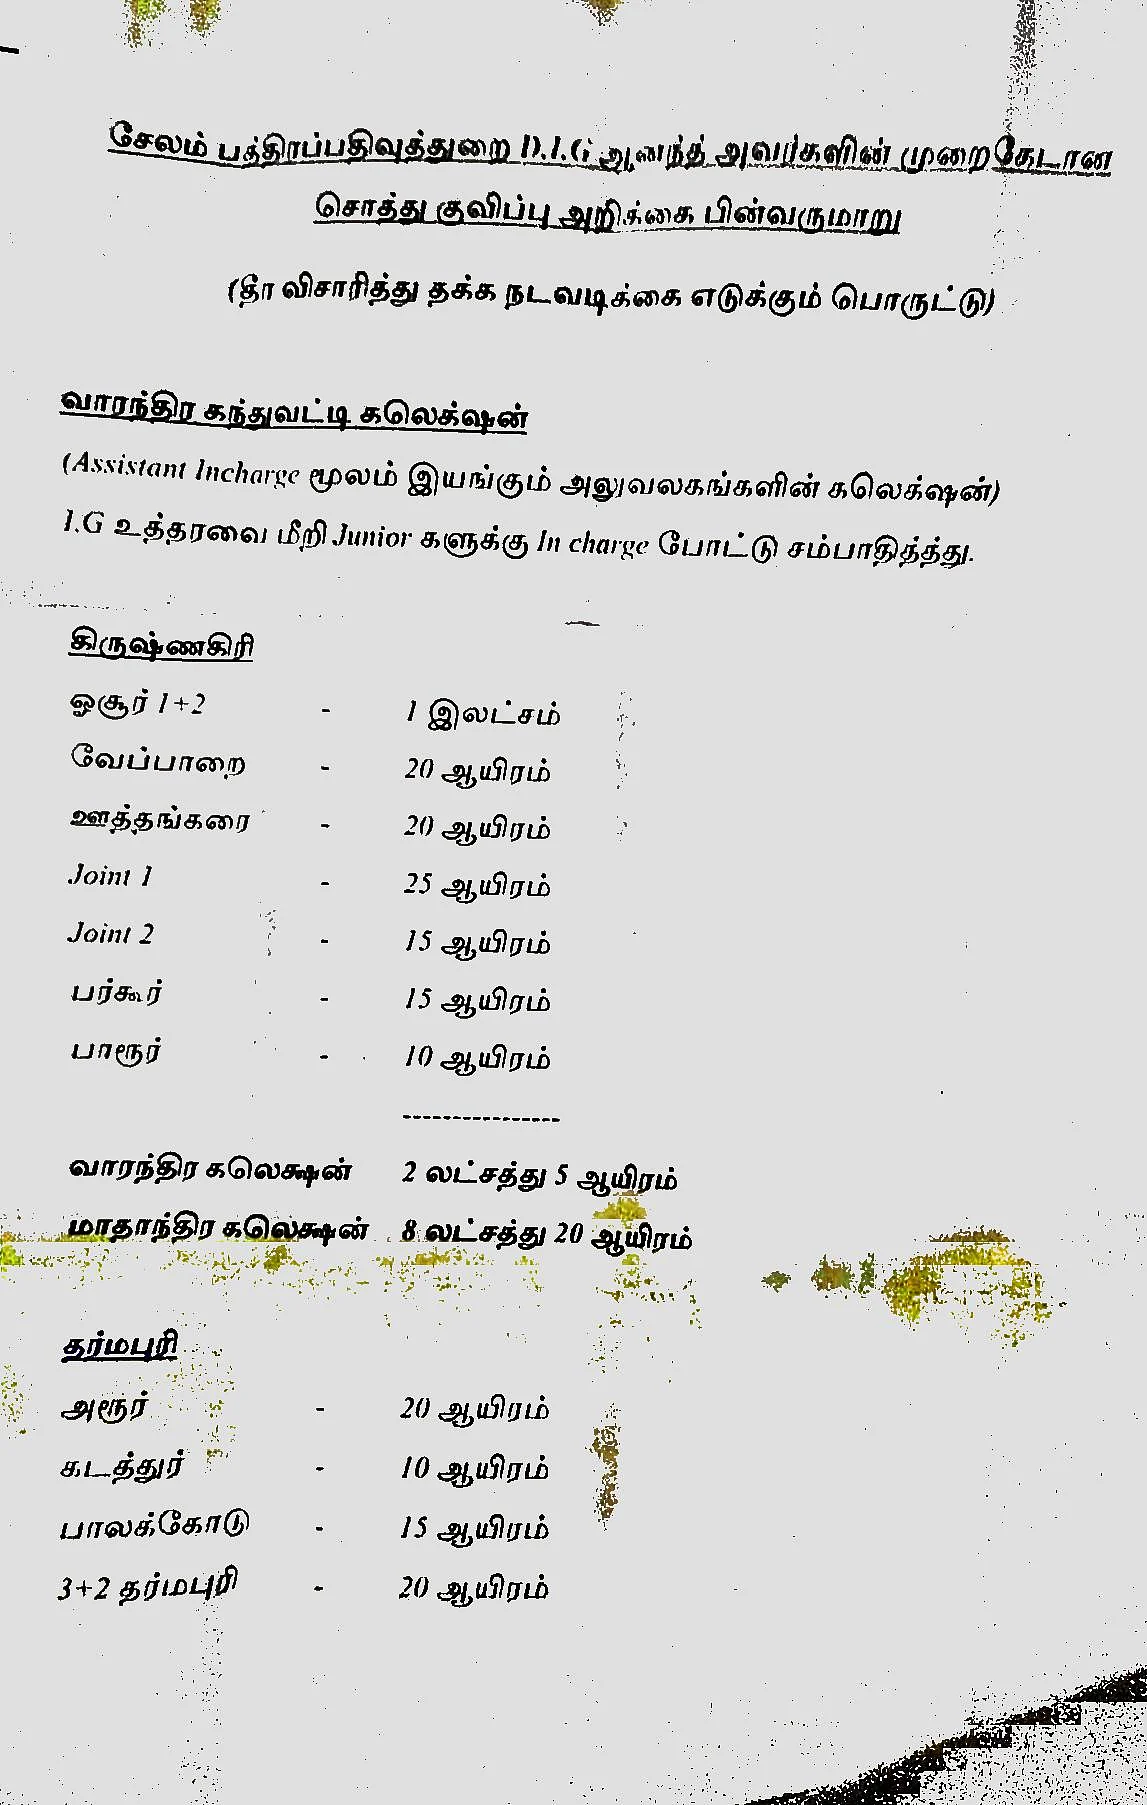 சேலம் பத்திரப்பதிவுத்துறை D.I.G ஆனந்த் அவர்களின் முறைகேடான
சொத்து குவிப்பு அறிக்கை பின்வருமாறு
(தீர விசாரித்து தக்க நடவடிக்கை எடுக்கும் பொருட்டு)
வாரந்திர கந்துவட்டி கலெக்ஷன்
(Assistant Incharge மூலம் இயங்கும் அலுவலகங்களின் கலெக்ஷன்)
I.G உத்தரவை மீறி Junior களுக்கு In charge போட்டு சம்பாதித்த்து.
கிருஷ்ணகிரி
ஓசூர் 1+2 - 1 இலட்சம்
வேப்பாறை - 20 ஆயிரம்
ஊத்தங்கரை - 20 ஆயிரம்
Joint 1 - 25 ஆயிரம்
Joint 2 - 15 ஆயிரம்
பர்கூர் - 15 ஆயிரம்
பாரூர் - 10 ஆயிரம்
----------------
வாரந்திர கலெக்ஷன் 2 லட்சத்து 5 ஆயிரம்
மாதாந்திர கலெக்ஷன் 8 லட்சத்து 20 ஆயிரம்
தர்மபுரி
அரூர் - 20 ஆயிரம்
கடத்துர் - 10 ஆயிரம்
பாலக்கோடு - 15 ஆயிரம்
3+2 தர்மபுரி - 20 ஆயிரம்